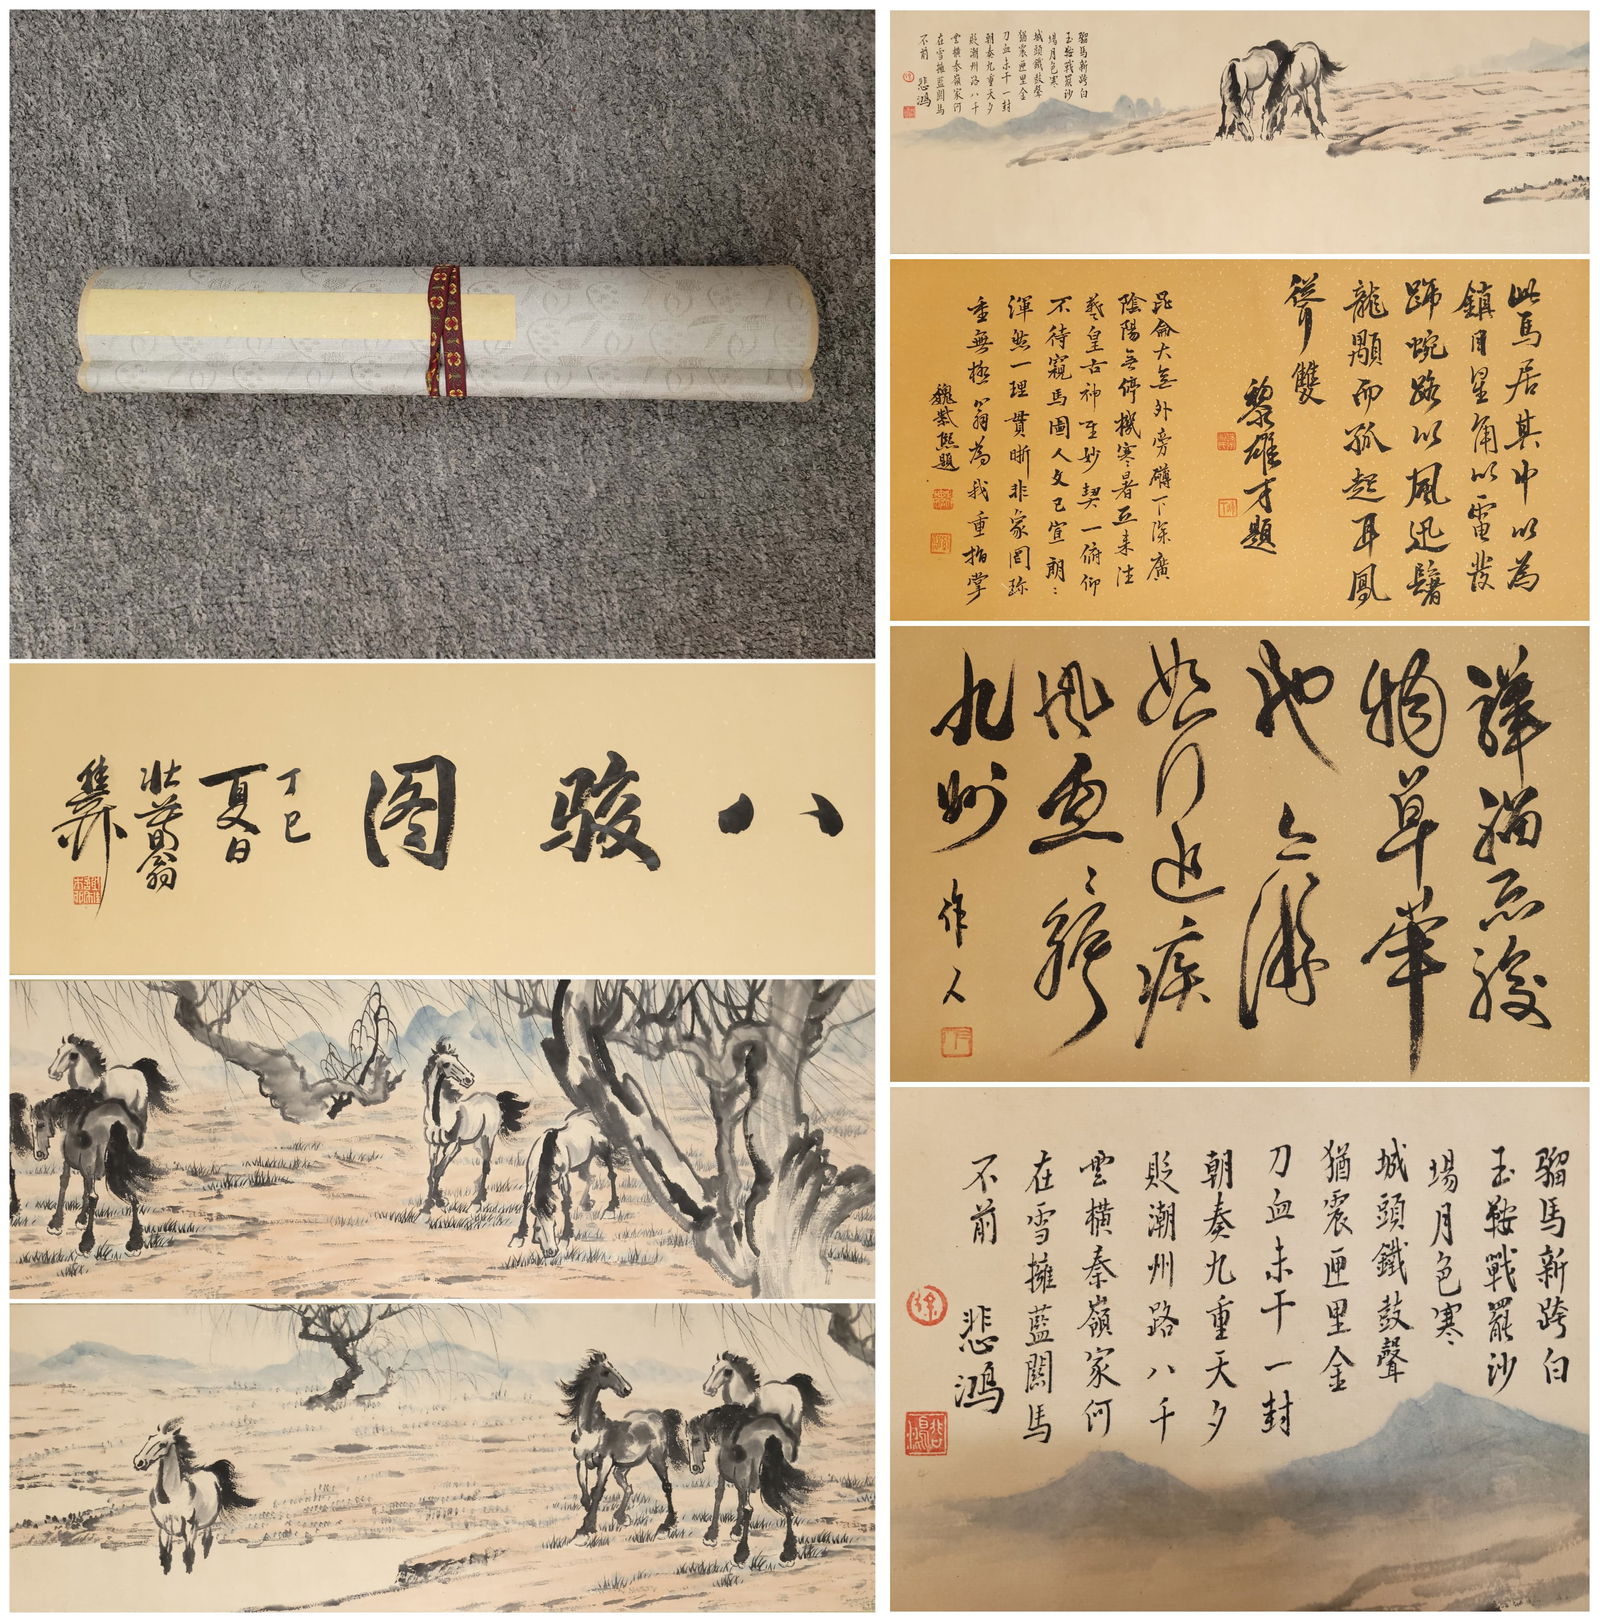 八骏图
丁巳
夏日
壮暮翁
騮馬新跨白
玉鞍戰罷沙
場月色寒
城頭鐵鼓聲
猶震匣里金
刀血未干一封
朝奏九重天夕
貶潮州路八千
雲横秦嶺家何
在雪擁藍關馬
不前
悲鴻
此馬居其中以為
鎮目星角以電發
蹄蜿踠以風迅鬐
龍顒而孤起耳鳳
聳雙
黎雄才題
昆侖大無外旁礴下深廣
陰陽無停機寒暑互來往
羲皇古神聖妙契一俯仰
不待窺馬圖人文已宣朗
渾然一理貫晰非象罔珎
重無極翁為我重指掌
魏紫熙題
草筆
如行追疾
九州
作人
騮馬新跨白
玉鞍戰罷沙
場月色寒
城頭鐵鼓聲
猶震匣里金
刀血未干一封
朝奏九重天夕
貶潮州路八千
雲横秦嶺家何
在雪擁藍關馬
不前
悲鴻
徐
悲鴻